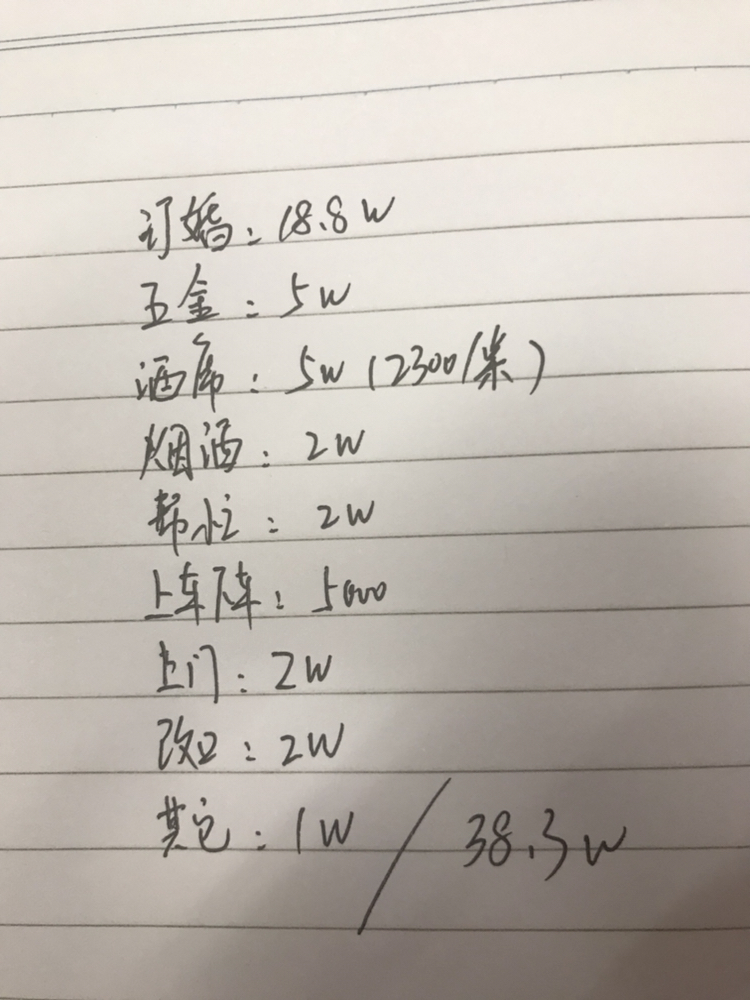 订婚：18.8W
五金：5W
酒席：5W（2300/桌）
烟酒：2W
帮忙：2W
上车下车：5000
上门：2W
改口：2W
其它：1W / 38.3W